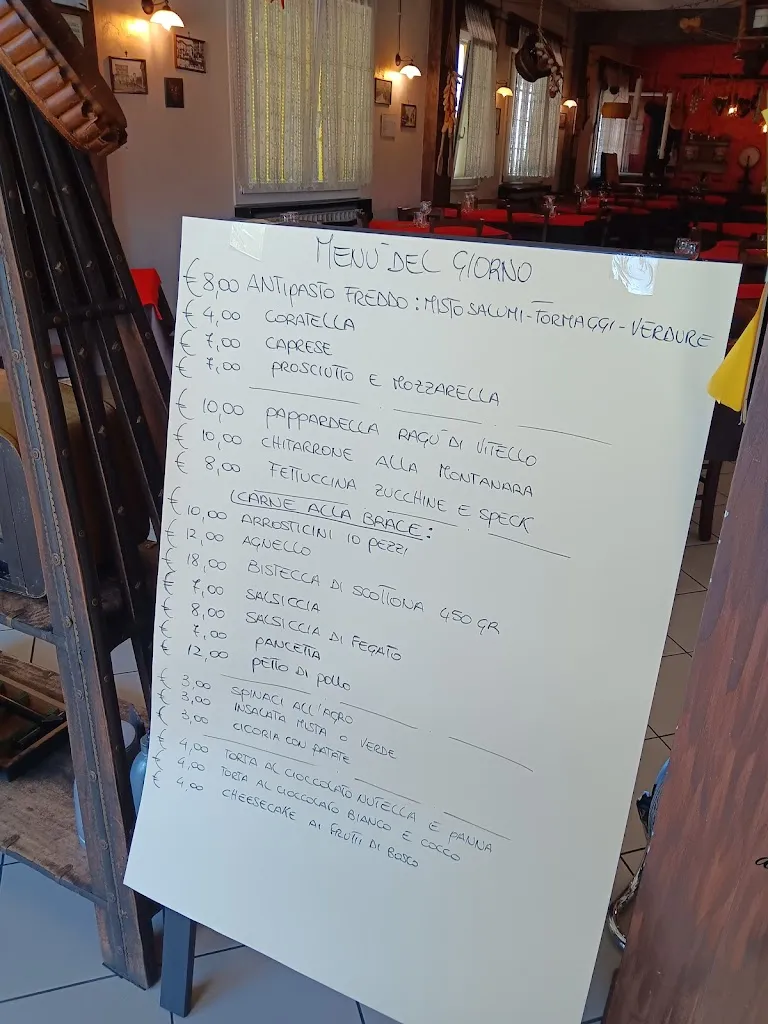 MENÙ DEL GIORNO
€ 8,00 ANTIPASTO FREDDO: MISTO SALUMI-FORMAGGI-VERDURE
€ 4,00 CORATELLA
€ 7,00 CAPRESE
€ 7,00 PROSCIUTTO E MOZZARELLA
€ 10,00 PAPPARDELLA RAGÙ DI VITELLO
€ 10,00 CHITARRONE ALLA MONTANARA
€ 8,00 FETTUCCINA ZUCCHINE E SPECK
CARNE ALLA BRACE:
€ 10,00 ARROSTICINI 10 PEZZI
€ 12,00 AGNELLO
€ 18,00 BISTECCA DI SCOTTONA 450 GR
€ 7,00 SALSICCIA
€ 8,00 SALSICCIA DI FEGATO
€ 7,00 PANCETTA
€ 12,00 PETTO DI POLLO
€ 3,00 SPINACI ALL'AGRO
€ 3,00 INSALATA MISTA O VERDE
€ 3,00 CICORIA CON PATATE
€ 4,00 TORTA AL CIOCCOLATO NUTELLA E PANNA
€ 4,00 TORTA AL CIOCCOLATO BIANCO E COCCO
€ 4,00 CHEESECAKE AI FRUTTI DI BOSCO